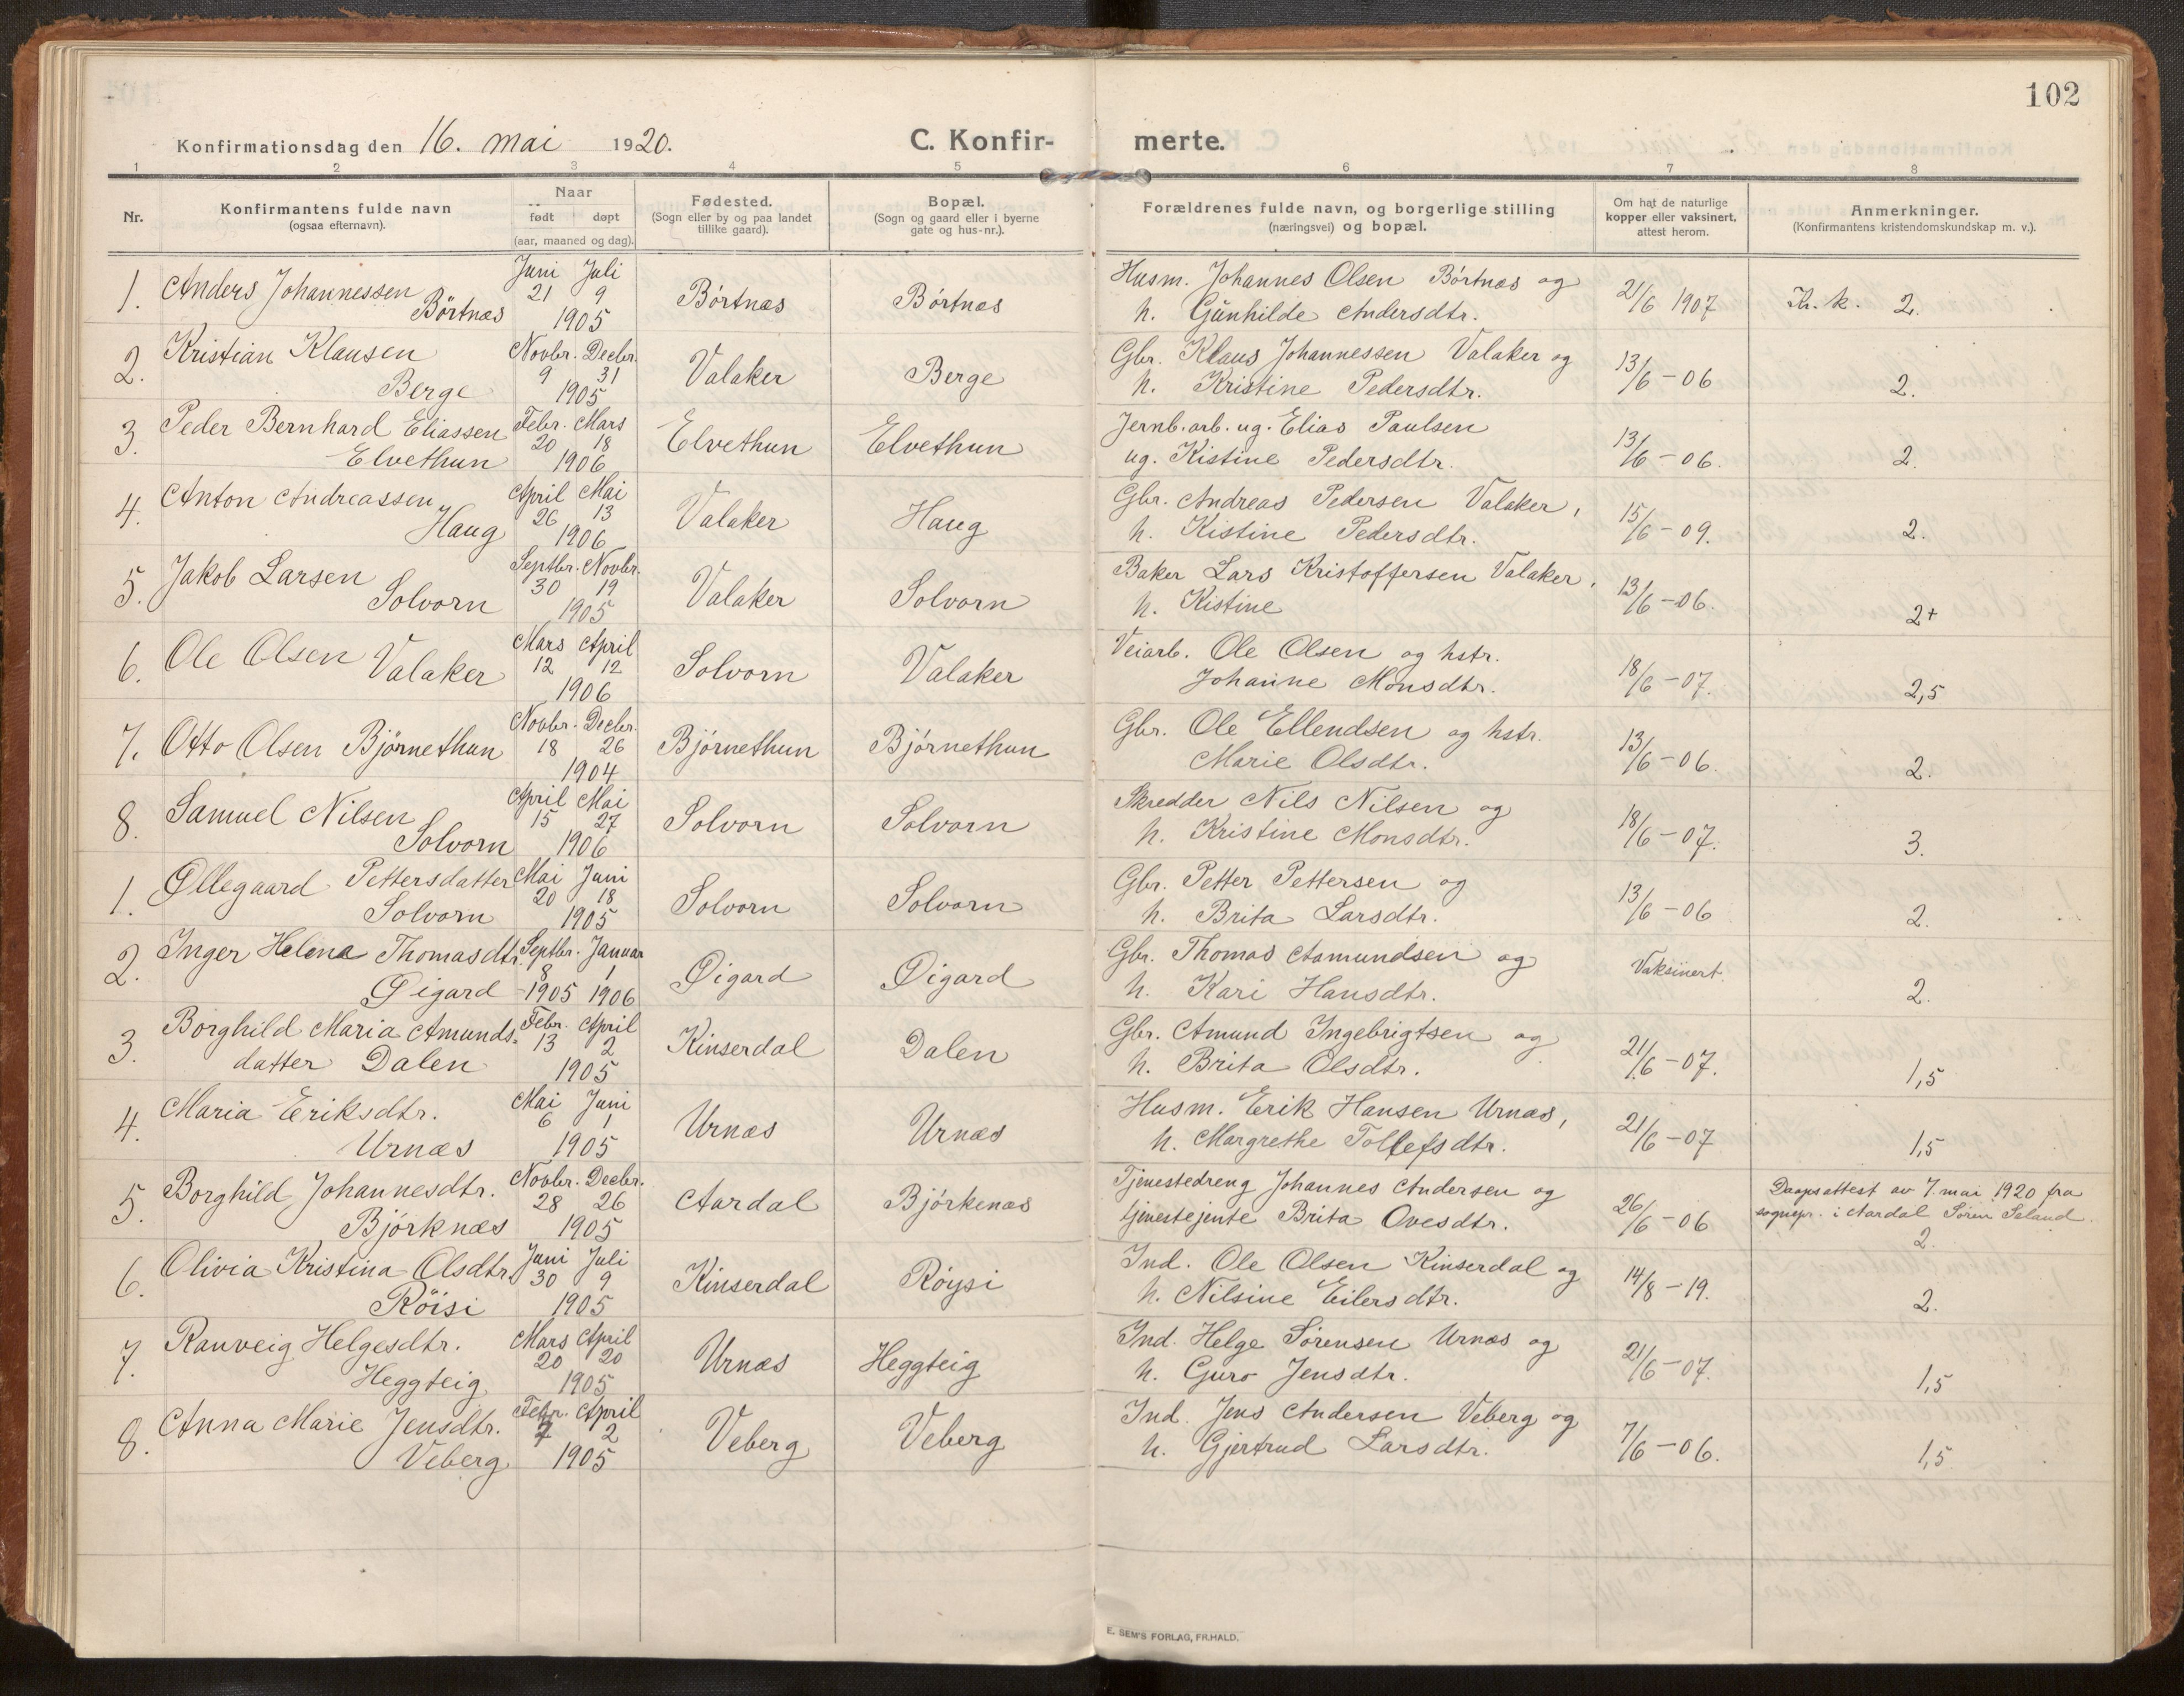 102
Konfirmationsdag den 16. mai 1920.
C. Konfir- merte.
1 2 3 4 5 6 7 8
Nr.
Konfirmantens fulde navn
(ogsaa efternavn).
Naar
født døpt
(aar, maaned og dag).
Fødested.
(Sogn eller by og paa landet
tillike gaard).
Bopæl.
(Sogn og gaard eller i byerne
gate og hus-nr.).
Forældrenes fulde navn, og borgerlige stilling
(næringsvei) og bopæl.
Om hat de naturlige
kopper eller vaksinert,
attest herom.
Anmerkninger.
(Konfirmantens kristendomskundskap m. v.).
1. Anders Johannessen
Børtnæs
Juni Juli
21 9
1905
Børtnæs
Børtnæs
Husm. Johannes Olsen Børtnæs og
h. Gunhilde Andersdtr.
21/6 1907
Kr. k. 2.
2. Kristian Klausen
Berge
Novbr. Decbr.
9 31
1905
Valaker
Berge
Gbr. Klaus Johannessen Valaker og
h. Kristine Pedersdtr.
13/6 - 06
2.
3. Peder Bernhard Eliassen
Elvethun
Febr. Mars
20 18
1906
Elvethun
Elvethun
Jernb.arb. ug. Elias Paulsen
ug. Kistine Pedersdtr.
13/6 - 06.
2.
4. Anton Andreassen
Haug
April Mai
26 13
1906
Valaker
Haug
Gbr. Andreas Pedersen Valaker,
h. Kistine Pedersdtr.
15/6 - 09.
2.
5. Jakob Larsen
Solvorn
Septbr. Novbr.
30 19
1905
Valaker
Solvorn
Baker Lars Kristoffersen Valaker,
h. Kistine
13/6 - 06.
2+
6. Ole Olsen Valaker
Mars April
12 12
1906
Solvorn
Valaker
Veiarb. Ole Olsen og hstr.
Johanne Monsdtr.
18/6 - 07.
2,5
7. Otto Olsen Bjørnethun
Novbr. Decbr.
18 26
1904
Bjørnethun
Bjørnethun
Gbr. Ole Ellendsen og hstr.
Marie Olsdtr.
13/6 - 06.
2.
8. Samuel Nilsen
Solvorn
April Mai
15 27
1906
Solvorn
Solvorn
Skredder Nils Nilsen og
h. Kristine Monsdtr.
18/6 - 07.
3.
1. Øllegaard Pettersdatter
Solvorn
Mai Juni
20 18
1905
Solvorn
Solvorn
Gbr. Petter Pettersen og
h. Brita Larsdtr.
13/6 - 06
2.
2. Inger Helena Thomasdtr.
Øigard
Septbr. Januar
8 1
1905 1906
Øigard
Øigard
Gbr. Thomas Aamundsen og
h. Kari Hansdtr.
Vaksinert.
2.
3. Borghild Maria Amunds-
datter Dalen
Febr. April
13 2
1905
Kinserdal
Dalen
Gbr. Amund Ingebrigtsen og
h. Brita Olsdtr.
21/6 - 07.
1,5
4. Maria Eriksdtr.
Urnæs
Mai Juni
6 1
1905
Urnæs
Urnæs
Husm. Erik Hansen Urnæs,
h. Margrethe Tollefsdtr.
21/6 - 07
1,5
5. Borghild Johannesdtr.
Bjørknæs
Novbr. Decbr.
28 26
1905
Aardal
Bjørkenæs
Tjenestedreng Johannes Andersen og
tjenestejente Brita Ovesdtr.
26/6 - 06
Daapsattest av 7. mai 1920 fra
sognepr. i Aardal Søren Seland.
2.
6. Olivia Kristina Olsdtr.
Röisi
Juni Juli
30 9
1905
Kinserdal
Röysi
Ind. Ole Olsen Kinserdal og
h. Nilsine Eilersdtr.
14/8 - 19.
2.
7. Ranveig Helgesdtr.
Heggteig
Mars April
20 20
1905
Urnæs
Heggteig
Ind. Helge Sørensen Urnæs og
h. Guro Jensdtr.
21/6 - 07.
1,5
8. Anna Marie Jensdtr.
Veberg
Febr. April
7 2
1905
Veberg
Veberg
Ind. Jens Andersen Veberg og
h. Gjertrud Larsdtr.
7/6 - 06.
1,5
E. SEM'S FORLAG, FR.HALD.